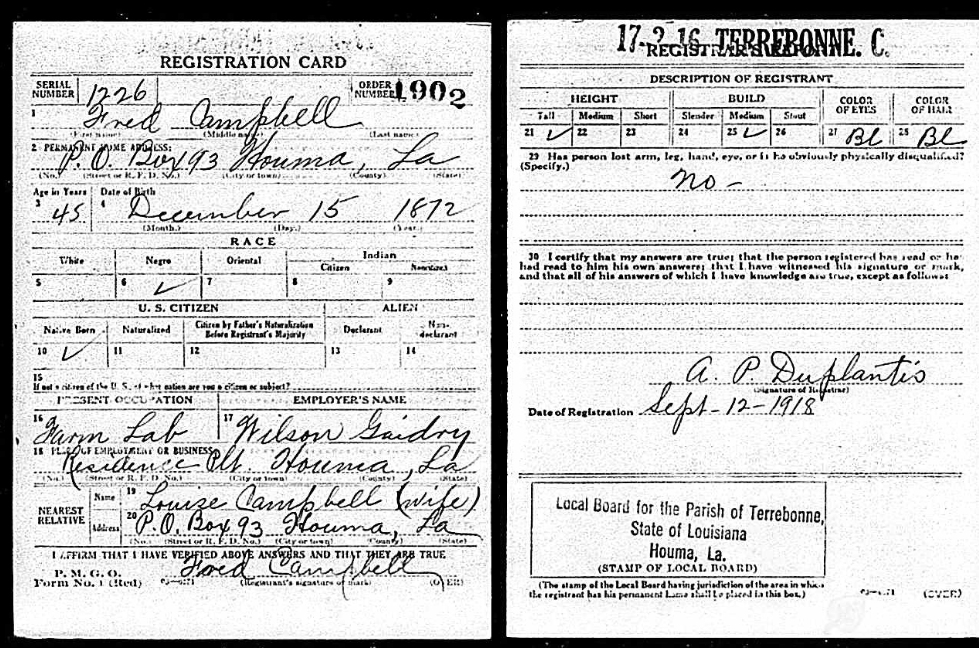 REGISTRATION CARD
SERIAL NUMBER 1226 ORDER NUMBER 1902
1 Fred Campbell
(First name) (Middle name) (Last name)
2 PERMANENT HOME ADDRESS:
P.O. Box 93 Houma, La
(No.) (Street or R. F. D. No.) (City or town) (County) (State)
Age in Years Date of Birth
3 45 4 December 15 1872
(Month.) (Day.) (Year.)
RACE
White Negro Oriental Indian
Citizen
5 6 ✓ 7 8 9
U. S. CITIZEN ALIEN
Native Born Naturalized Citizen by Father's Naturalization Before Registrant's Majority Declarant Non-declarant
10 ✓ 11 12 13 14
15
If not a citizen of the U. S., of what nation are you a citizen or subject?
PRESENT OCCUPATION EMPLOYER'S NAME
16 Farm Lab 17 Wilson Gaidry
18 PLACE OF EMPLOYMENT OR BUSINESS:
Residence Plt. Houma, La
(No.) (Street or R. F. D. No.) (City or town) (County) (State)
NEAREST RELATIVE Name 19 Louise Campbell (wife)
Address 20 P.O. Box 93 Houma, La
(No.) (Street or R. F. D. No.) (City or town) (County) (State)
I AFFIRM THAT I HAVE VERIFIED ABOVE ANSWERS AND THAT THEY ARE TRUE
P. M. G. O.
Form No. 1 (Red) Fred Campbell
(Registrant's signature or mark) (OVER)
17-2-16 TERREBONNE. C.
REGISTRAR'S REPORT
DESCRIPTION OF REGISTRANT
HEIGHT BUILD COLOR OF EYES COLOR OF HAIR
Tall Medium Short Slender Medium Stout
21 ✓ 22 23 24 25 ✓ 26 27 Bl 28 Bl
29 Has person lost arm, leg, hand, eye, or is he obviously physically disqualified?
(Specify.)
no -
30 I certify that my answers are true; that the person registered has read or has
had read to him his own answers; that I have witnessed his signature or mark,
and that all of his answers of which I have knowledge are true, except as follows:
A. P. Duplantis
(Signature of Registrar)
Date of Registration Sept-12-1918
Local Board for the Parish of Terrebonne,
State of Louisiana
Houma, La.
(STAMP OF LOCAL BOARD)
(The stamp of the Local Board having jurisdiction of the area in which
the registrant has his permanent home shall be placed in this box.)
(OVER)